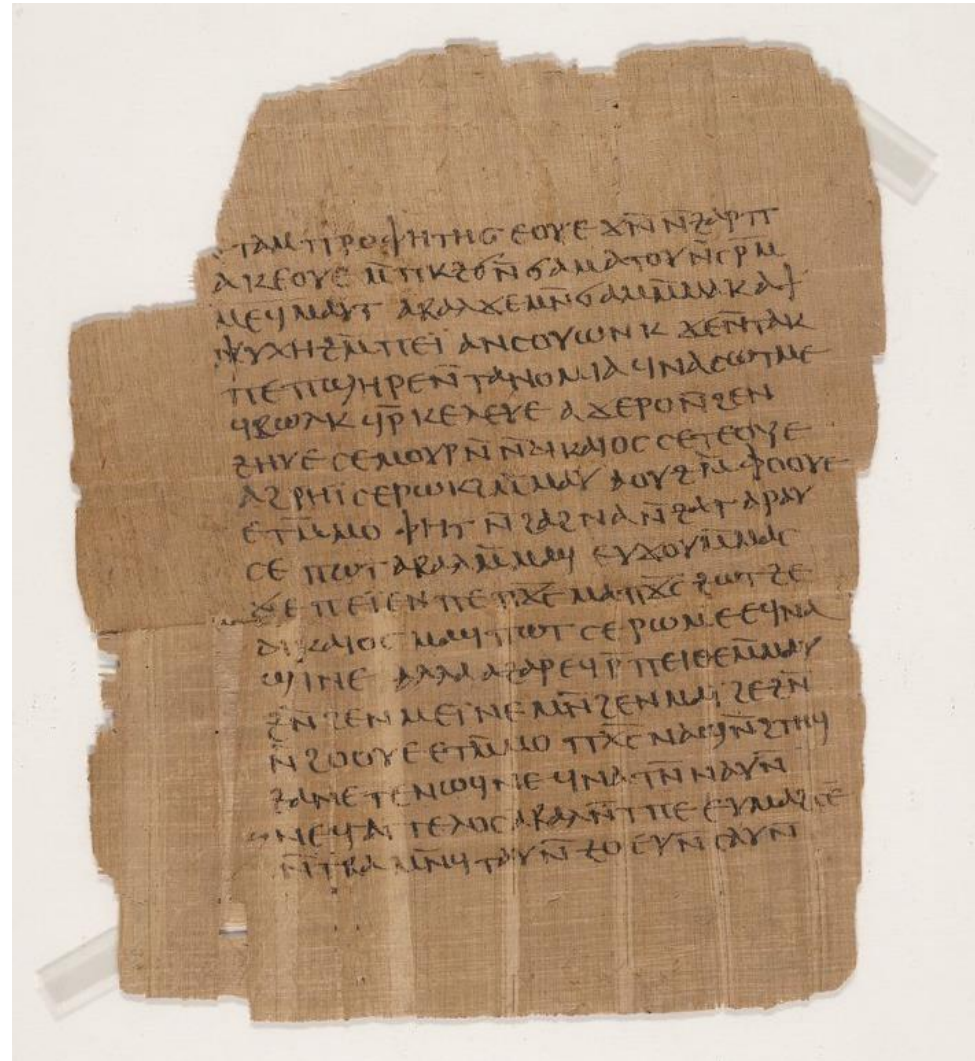 ⲧⲁⲙⲡⲣⲟⲫⲏⲧⲏⲥ ⲉⲟⲩⲉ ϫⲛ̄ ⲛ̄ⳉⲁⲣⲡ
ⲁⲕⲉⲟⲩⲉ ⲙ̄ⲡⲕϩϭⲛ̄ϭⲁⲙ ⲁⲧⲟⲩⲛ̄ⲥ ⲣ̄ⲙ
ⲙⲉϥⲙⲁⲩⲧ ⲁⲃⲁⲗ ϫⲉ ⲙⲛ̄ϭⲁⲙ ⲙ̄ⲙⲁⲕ ⲁϯ
ⲯⲩⲭⲏ ϩⲙ̄ⲡⲉⲓ̈ ⲁⲛⲥⲟⲩⲱⲛⲕ ϫⲉⲛ̄ⲧⲁⲕ
ⲡⲉ ⲡϣⲏⲣⲉ ⲛ̄ⲧⲁⲛⲟⲙⲓⲁ ϥⲛⲁⲥⲱⲧⲙⲉ
ϥⲃⲱⲗⲕ ϥⲣ̄ⲕⲉⲗⲉⲩⲉ ⲁϫⲉⲣⲟ ⲛ̄ϩⲉⲛ
ϩⲏⲩⲉ ⲥⲉⲙⲟⲩⲣ ⲛ̄ⲛ̄ⲇⲓⲕⲁⲓⲟⲥ ⲥⲉⲧⲉⲟⲩⲉ
ⲁϩⲣⲏⲓ̈ ⲥⲉⲣⲱⲕϩ ⲙ̄ⲙⲁⲩ ⲁⲟⲩ ϩⲛ̄ ⲫⲟⲟⲩⲉ
ⲉⲧⲙ̄ⲙⲟ ⲫⲏⲧ ⲛ̄ϩⲁϩ ⲛⲁⲛ̄ⳉⲁⲧ ⲁⲣⲁⲩ
ⲥⲉ ⲡⲱⲧ ⲁⲃⲁⲗ ⲙ̄ⲙⲁϥ ⲉⲩϫⲟⲩ ⲙ̄ⲙⲁⲥ
ϫⲉ ⲡⲉⲓ̈ ⲉⲛ ⲡⲉ ⲡⲭ̄ⲥ ⲙⲁⲡⲭ̄ⲥ
ⲇⲓⲕⲁⲓⲟⲥ ⲙⲁϥⲡⲱⲧ ⲥⲉ ⲣⲱⲙⲉ ⲉϥⲛⲁ
ϣⲓⲛⲉ ⲁⲗⲗⲁ ⲁϩⲁⲣⲉϥⲣ̄ ⲡⲉⲓⲑⲉ ⲙ̄ⲙⲁⲩ
ϩⲛ̄ ϩⲉⲛⲙⲉⲓ̈ⲛⲉ ⲙⲛ̄ ϩⲉⲛⲙⲁⲓ̈ϩⲉ ϩⲛ̄
ⲛ̄ϩⲟⲟⲩⲉ ⲉⲧⲙ̄ⲙⲟ ⲡⲭ̄ⲥ ⲛⲁϣⲛ̄ϩⲧⲏϥ
ϩⲁⲛⲉⲧⲉⲛⲱϥ ⲛⲉ ϥⲛⲁⲧⲛ̄ⲛⲁⲩ ⲛ̄
ⲛⲉϥⲁⲅⲅⲉⲗⲟⲥ ⲁⲃⲁⲗ ⲛ̄ⲧⲡⲉ ⲉⲩⲙⲁϩⲥⲉ
ⲛ̄ⲧⲃⲁ ⲙⲛ̄ϥⲧⲁⲩ ⲛ̄ⳉⲟ ⲉⲩⲛ̄ ⲥⲁⲩ ⲛ̄